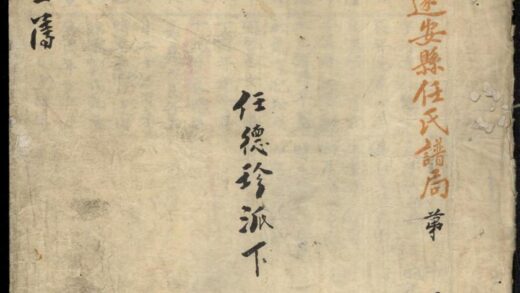 遂安縣任氏譜局 第
任德珍派下
簿